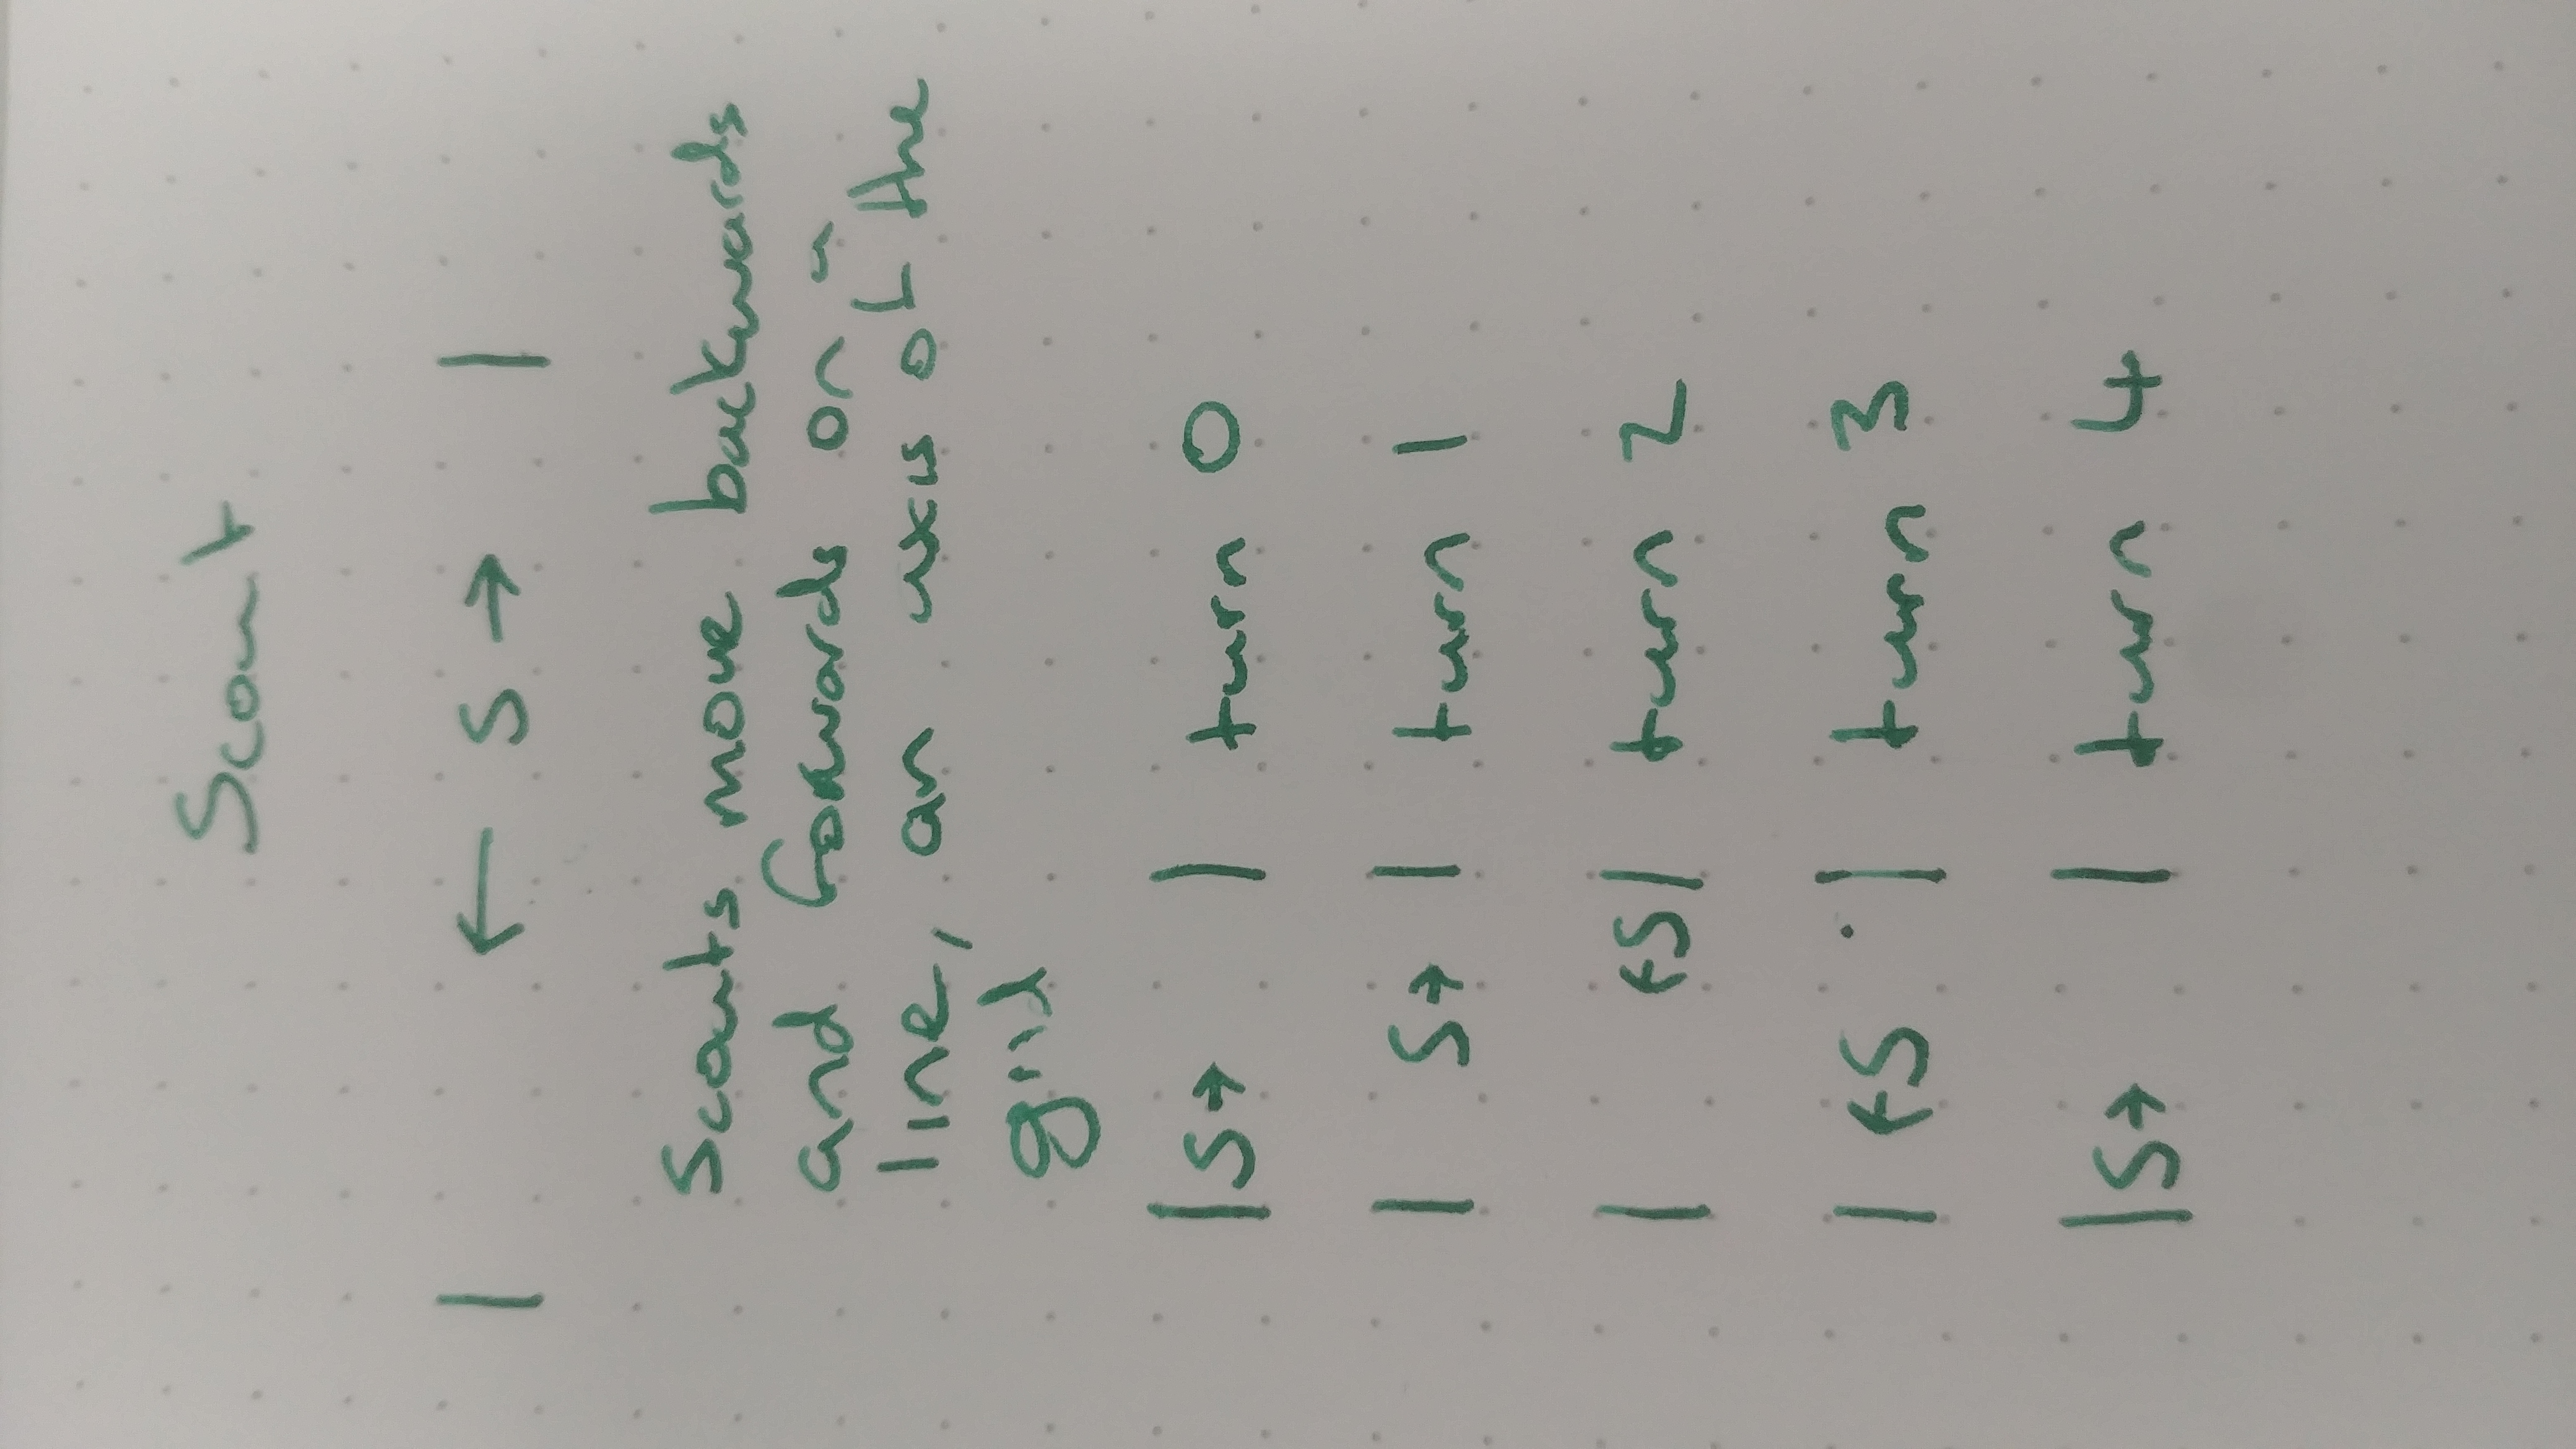 Scout
| ← S → |
Scouts move backwards
and forwards on a
line, an axis of the
grid
|S→ | turn 0
| S→ | turn 1
| ←S| turn 2
| ←S | turn 3
|S→ | turn 4